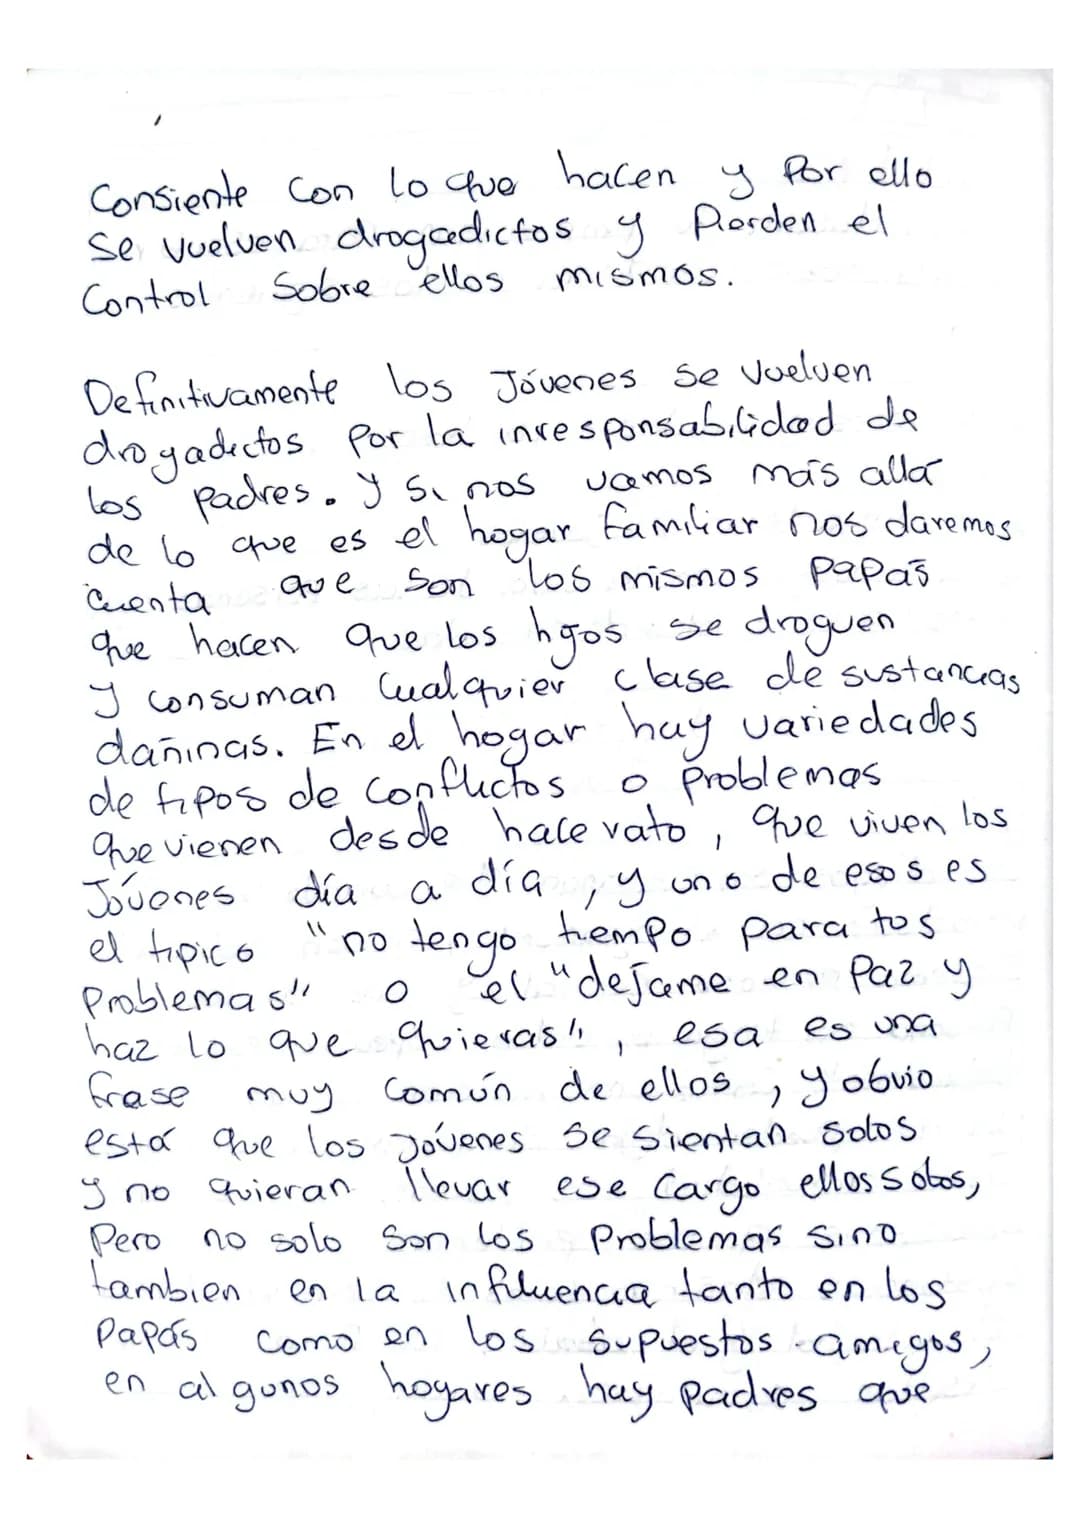 Consiente con lo que hacen y por ello
se vuelven drogadictos y pierden el
control sobre ellos mismos.
Definitivamente los Jóvenes se vuelven
drogadictos por la inresponsabilidad de
los padres. y si nos vamos más allá
de lo que es el hogar familiar nos daremos
cuenta que son los mismos papás
que hacen que los hijos se droguen
y consuman cualquier clase de sustancias
dañinas. En el hogar hay variedades
de tipos de conflictos o problemas
que vienen desde hace rato, que viven los
Jóvenes día a día, y uno de esos es
el tipico "no tengo tiempo para tus
problemas" o el "dejame en paz y
haz lo que quieras", esa es una
frase muy común de ellos, y obvio
está que los jóvenes se sientan solos
y no quieran llevar ese cargo ellos solos,
pero no solo son los problemas sino
tambien en la influencia tanto en los
papás como en los supuestos amigos,
en algunos hogares hay padres que